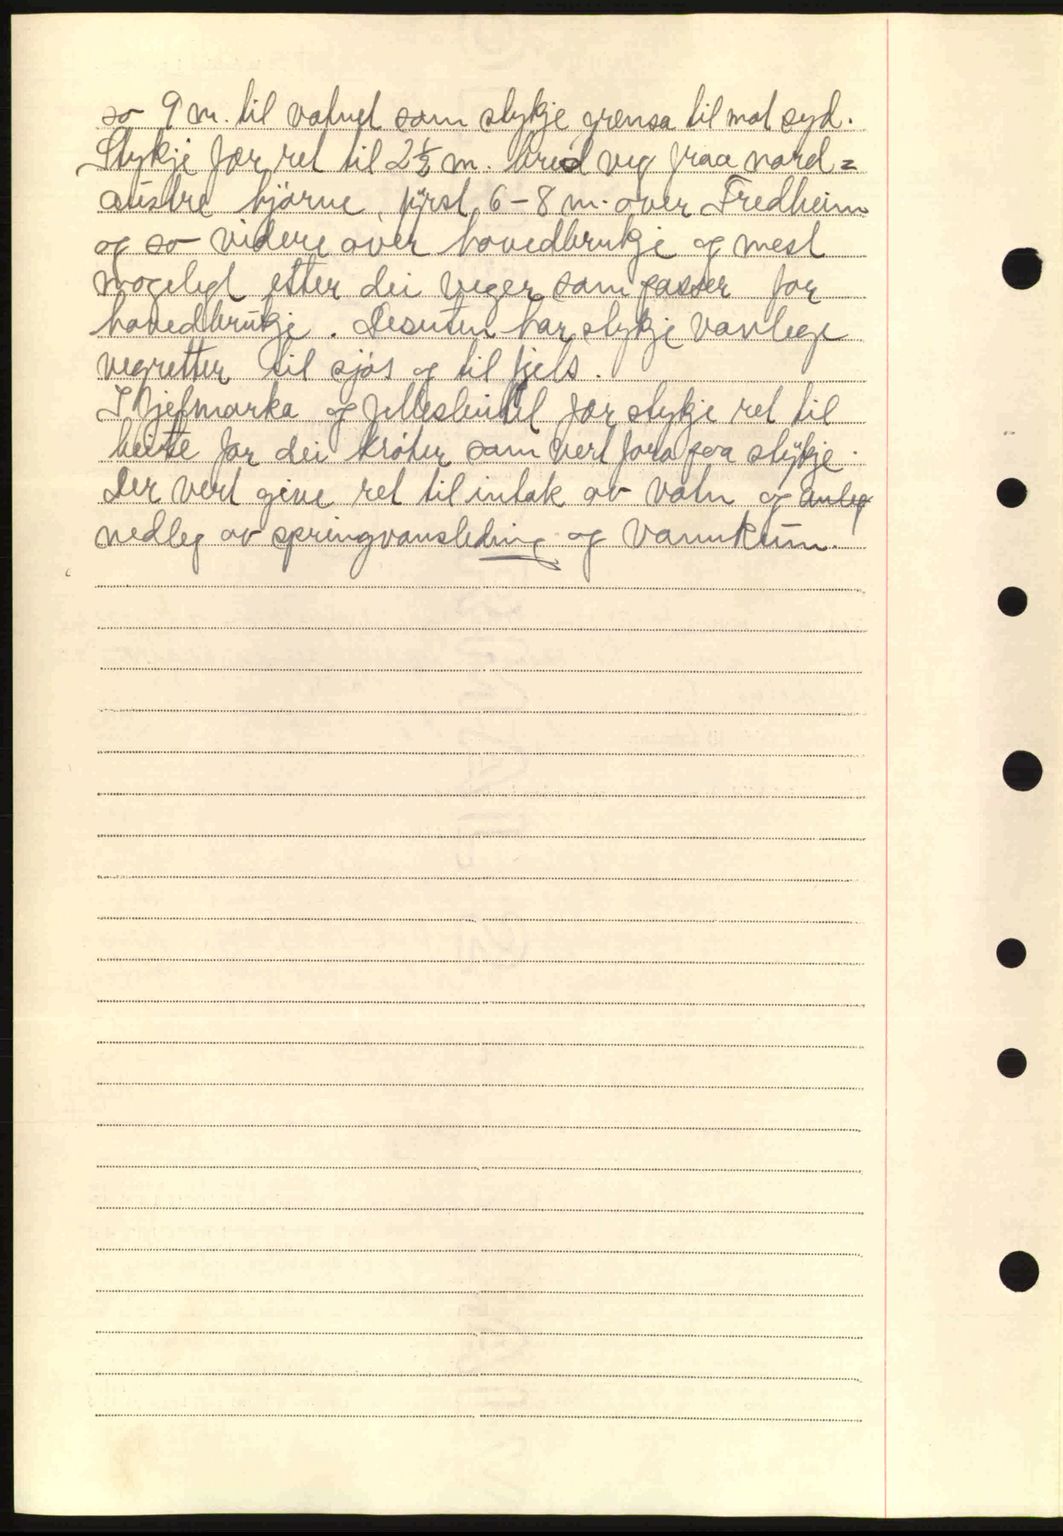 so 9 m. til vatnet som stykje grensa til mot syd.
Stykje faar ret til 2½ m. bred veg fraa nord=
austre hjörne, först 6-8 m. over Fredheim
og so videre over hovedbrukje og mest
mogelegt etter dei veger som passer for
hovedbrukje. Desuten har stykje vanlege
vegretter til sjös og til fjels.
I fjelmarka og fellesbeitet faar stykje ret til
beite for dei krøter som vert fora paa stykje.
Der vert give ret til intak av vatn og anleg
nedleg av springvansleding og vannkum.